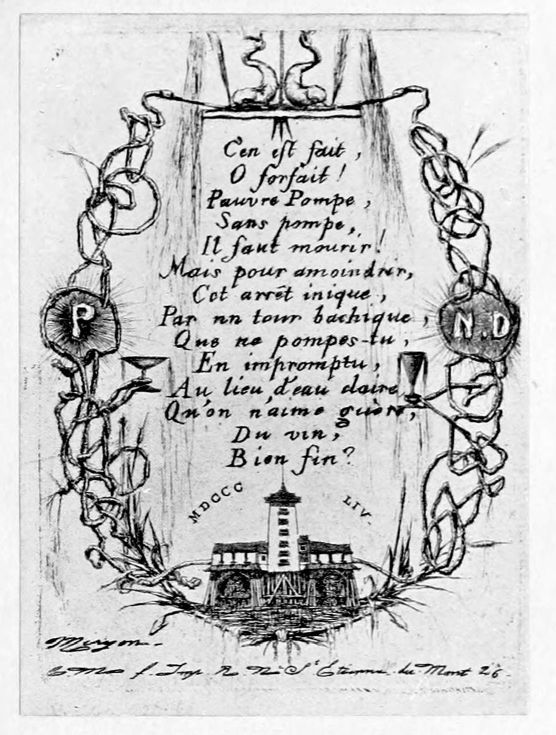 C'en est fait,
O forfait!
Pauvre Pompe,
Sans pompe,
Il faut mourir!
Mais pour amoindrir,
Cet arrêt inique,
Par un tour bachique,
Que ne pompes-tu,
En impromptu,
Au lieu d'eau claire
Qu'on n'aime guère,
Du vin,
Bien fin?
P
N.D
MDCCC LIV.
Meryon.
C M f. Imp. R. N. St Etienne du Mont 26.